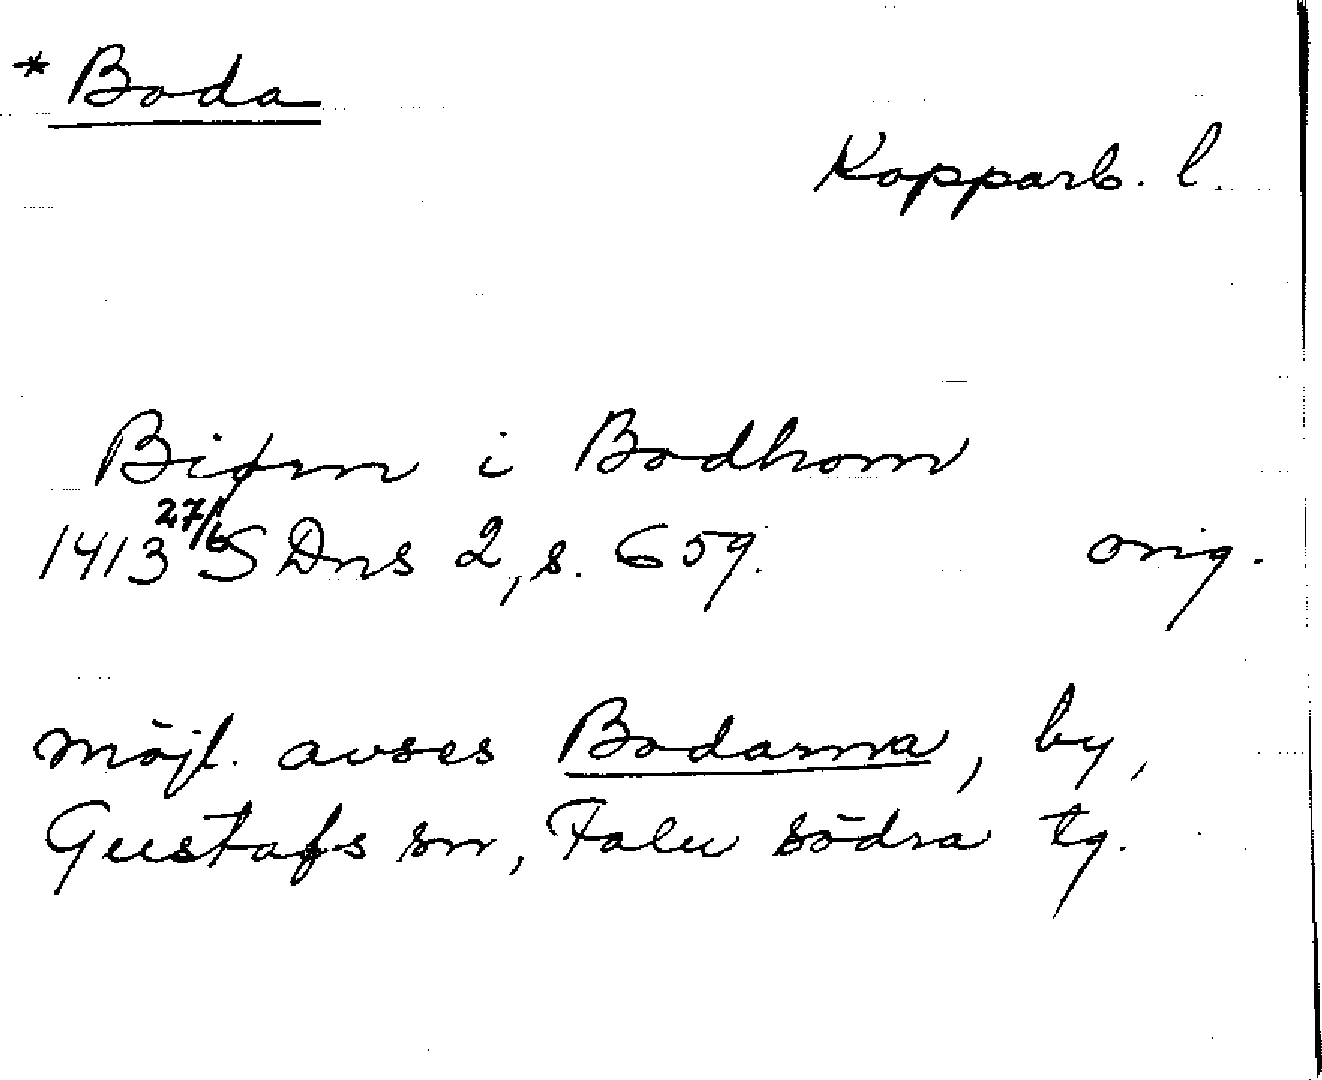 * Boda
Kopparb. l.
Biørn i Bodhom
1413 27/6 SDns 2, s. 659. orig.
möjl. avses Bodarna, by,
Gustafs sn, Falu södra tg.